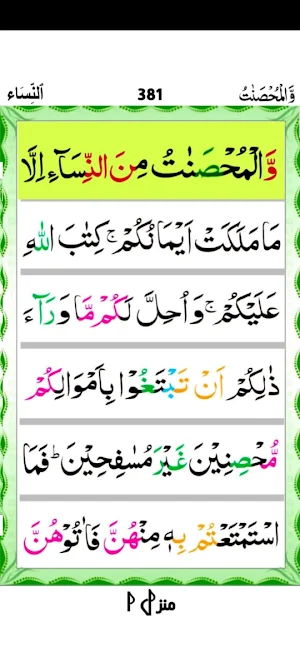 النِّسَاء 381 وَّالْمُحْصَنٰتُ
وَّالْمُحْصَنٰتُ مِنَ النِّسَآءِ اِلَّا
مَا مَلَكَتْ اَيْمَانُكُمْ ۚ كِتٰبَ اللّٰهِ
عَلَيْكُمْ ۚ وَاُحِلَّ لَكُمْ مَّا وَرَآءَ
ذٰلِكُمْ اَنْ تَبْتَغُوْا بِاَمْوَالِكُمْ
مُّحْصِنِيْنَ غَيْرَ مُسٰفِحِيْنَ ؕ فَمَا
اسْتَمْتَعْتُمْ بِهٖ مِنْهُنَّ فَاٰتُوْهُنَّ
منزل ۱